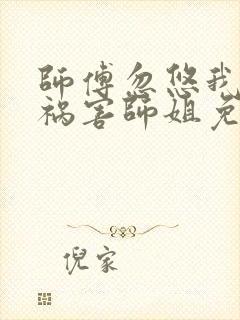 師傅忽悠我
祸害師姐免
倪家